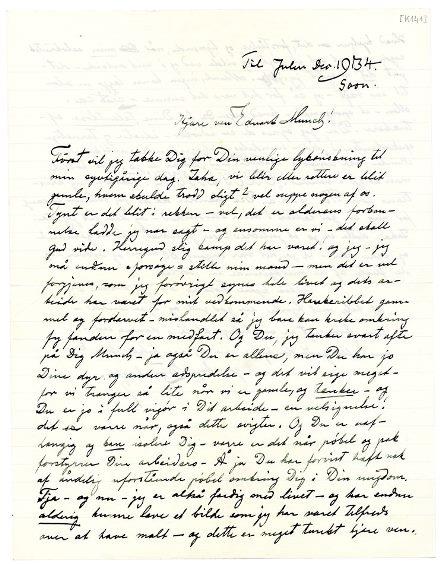 [K1413]
Til Julen Dec. 1934.
Soon.
Kjære ven Edvard Munch!
Først vil jeg takke Dig for Din venlige lykønskning til
min syvtiårige dag. Jaha, vi blir eller rettere er blit
gamle, hvem skulde trodd sligt? vel neppe nogen af os.
Tynt er det blit i rekken – vel, det er alderens forban-
nelse hadde jeg nær sagt – og ensomme er vi – det skall
gud vide. Herregud slig kamp det har været, og jeg – jeg
må endnu forsøge stelle min mand – men det er vel
forgjæves, som jeg forøvrigt synes hele livet og dets ar-
beide har været for mit vedkommende.
mel og fordærvet – mishandlet så jeg bare kan krabe omkring
fy fanden for en medfart. Og Du, jeg tenker svært ofte
på Dig Munch – ja også Du er allene, men Du har jo
Dine dyr og anden adspredelse – og det vil sige meget –
for vi trænger så lite når vi er gamle, og tænker – og
Du er jo i full vigør i Dit arbeide – en velsignelse.
det var værre når, også dette svigter. Og Du er uaf-
hængig og kan isolere Dig – værre er det når pøbel og pak
forstyrrer Dine arbeider – Å ja Du har forvist hatt nok
af åndelig uforstående pøbel omkring Dig i Din ungdom.
Tja – og nu – jeg er altså færdig med livet – og har endnu
aldrig kunne lave et bilde som jeg har været tilfreds
over at have malt – og dette er meget trist kjære ven.